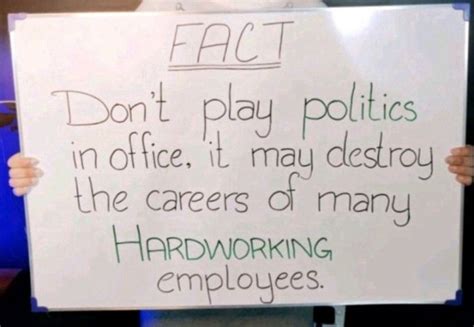 FACT
Don't play politics
in office, it may destroy
the careers of many
HARDWORKING
employees.